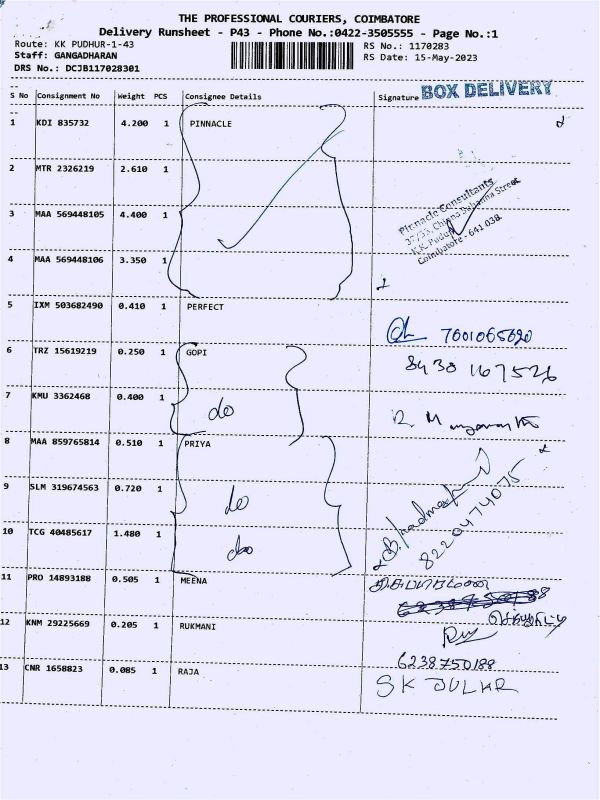 THE PROFESSIONAL COURIERS, COIMBATORE
Delivery Runsheet - P43 - Phone No.:0422-3505555 - Page No.:1
Route: KK PUDHUR-1-43 RS No.: 1170283
Staff: GANGADHARAN RS Date: 15-May-2023
DRS No.: DCJB117028301
S No Consignment No Weight PCS Consignee Details Signature BOX DELIVERY
1 KDI 835732 4.200 1 PINNACLE
2 MTR 2326219 2.610 1
Pinnacle Consultants
3 MAA 569448105 4.400 1
K.K. Pudur
Coimbatore - 641 038
4 MAA 569448106 3.350 1
5 IXM 503682490 0.410 1 PERFECT
7601065620
6 TRZ 15619219 0.250 1 GOPI 8438 167526
7 KMU 3362468 0.400 1 do
8 MAA 859765814 0.510 1 PRIYA
9 SLM 319674563 0.720 1 do 8220474075
10 TCG 40485617 1.480 1 do
11 PRO 14893188 0.505 1 MEENA
12 KNM 29225669 0.205 1 RUKMANI
6238750188
13 CNR 1658823 0.085 1 RAJA SK